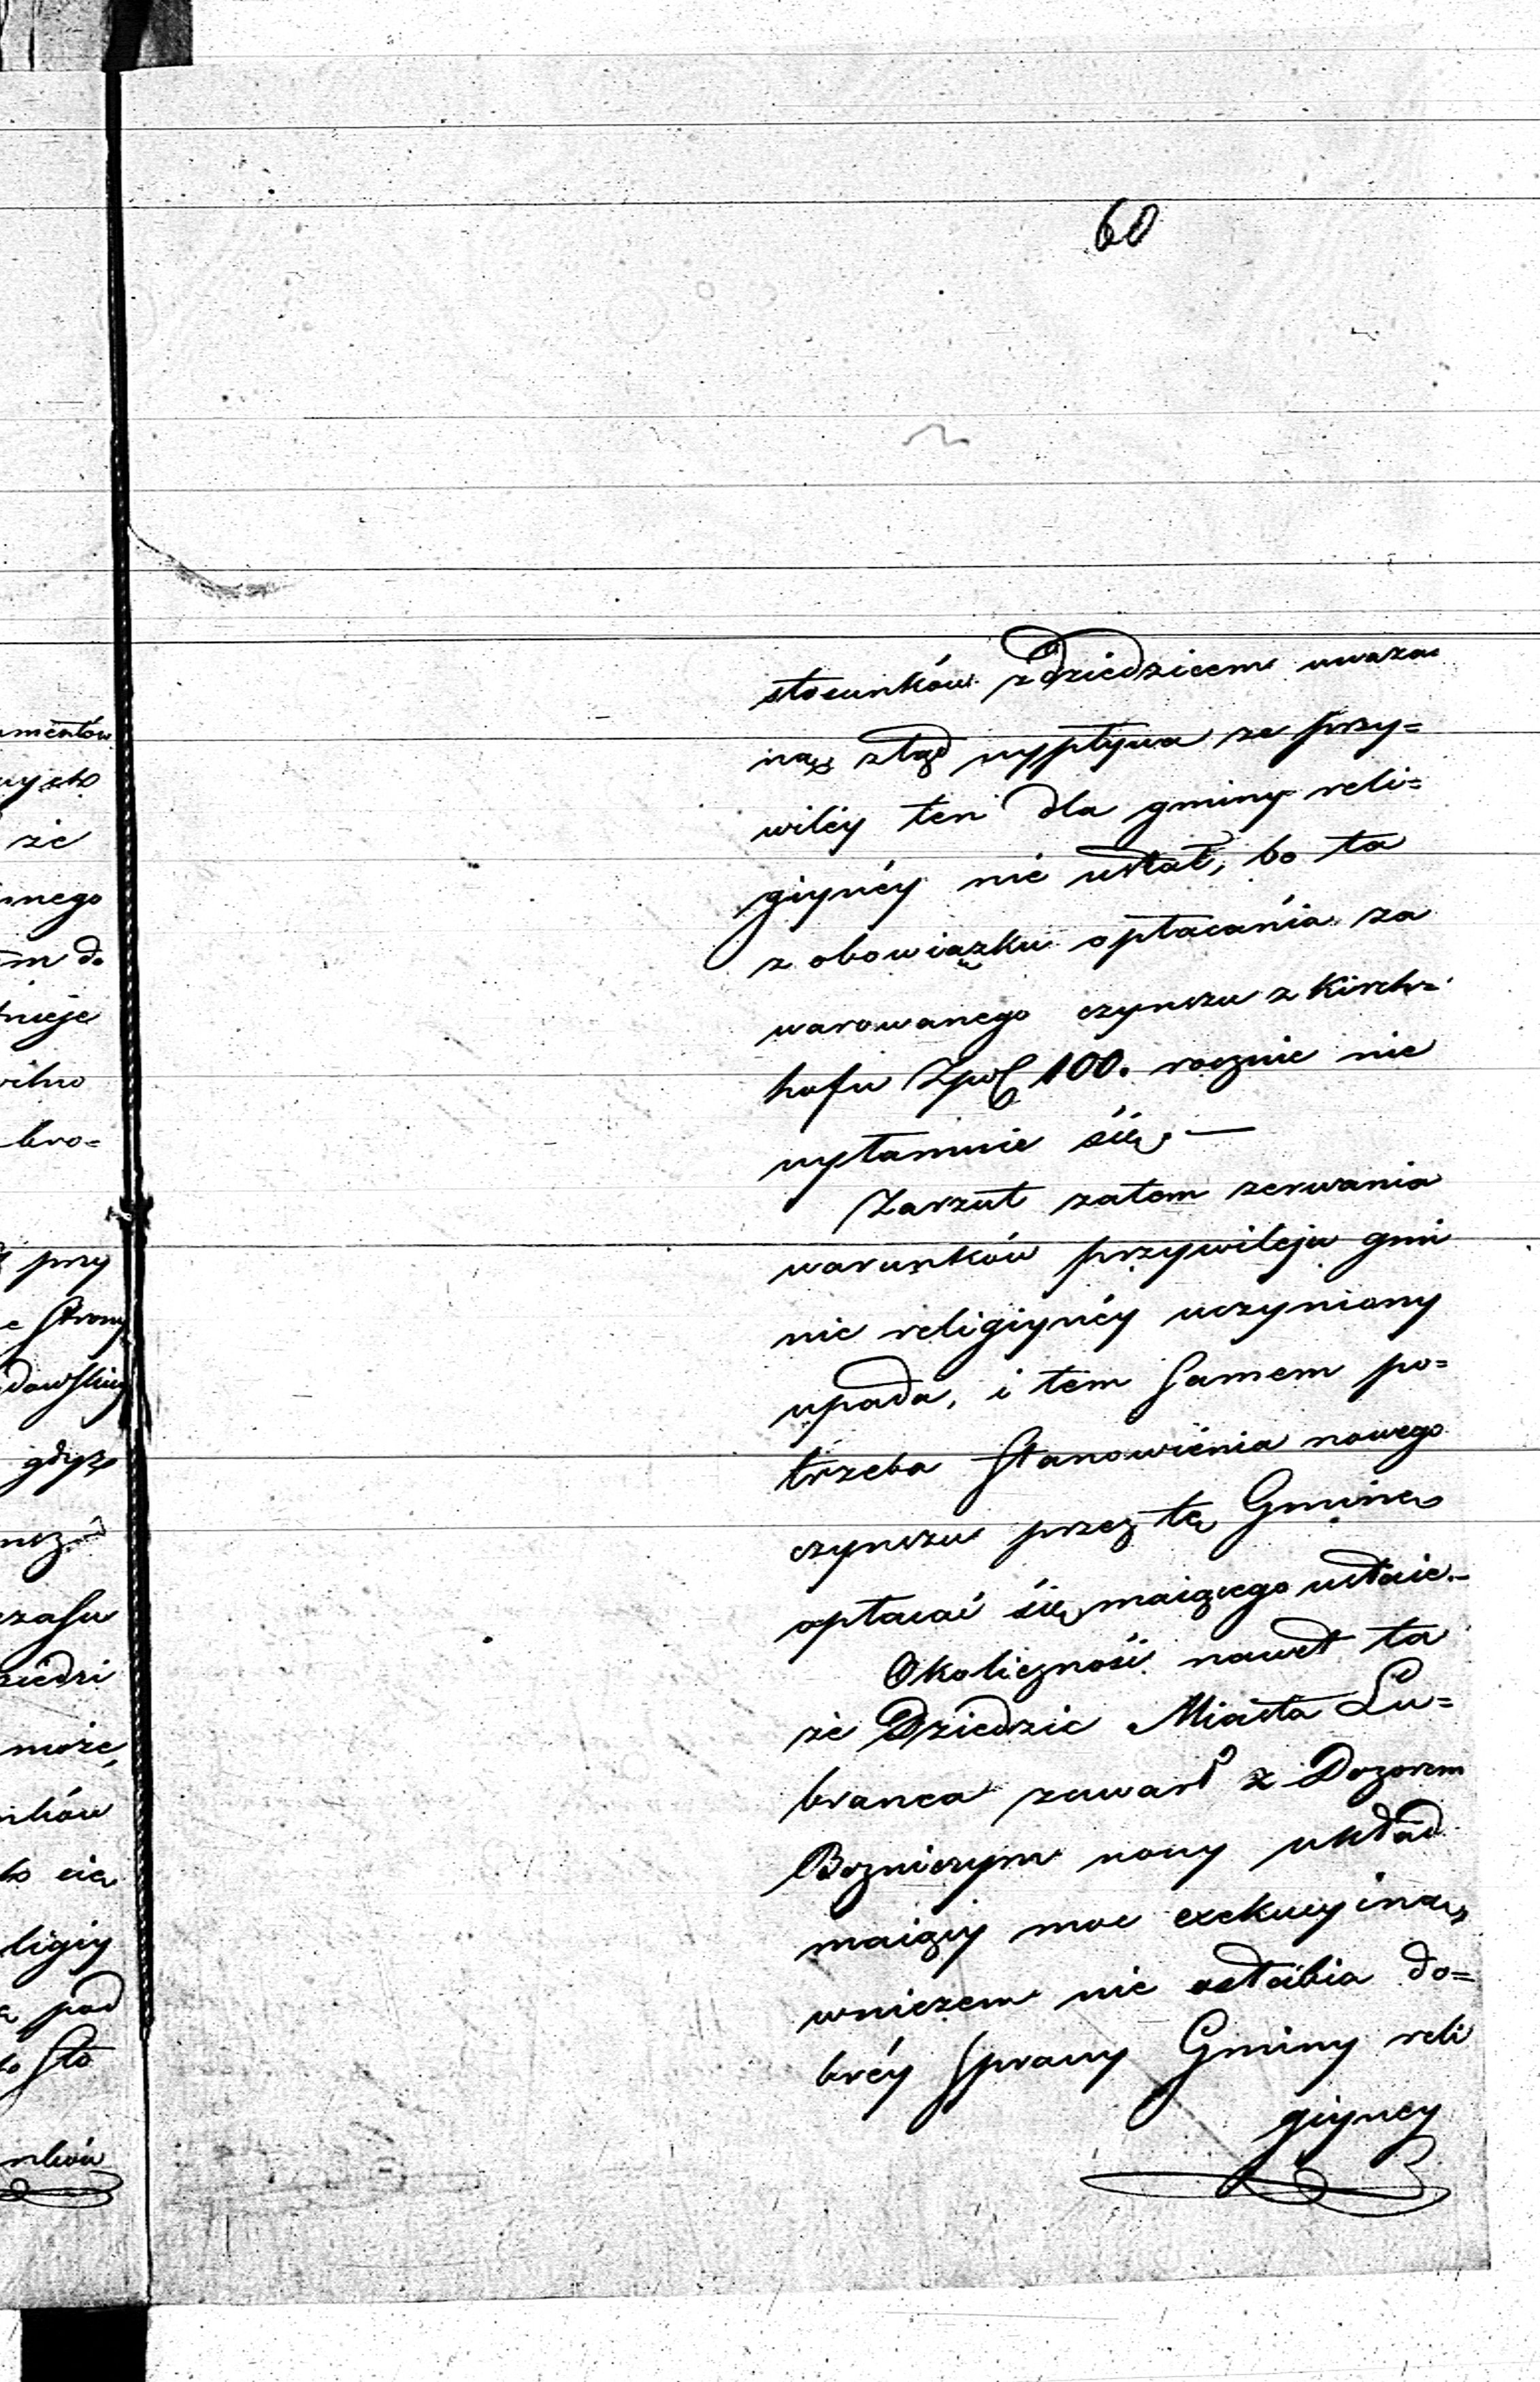 60
stosunków z dziedzicem uważa
ną, ztąd wypływa że przy=
wiléy ten dla gminy reli=
giynéy nie ustał, bo ta
z obowiązku opłacania za
warowanego czynszu z Kirch=
hofu Zpol 100. rocznie nie
wyłamuie się. —
Zarzut zatem zerwania
warunków przywileju gmi
nie religiynéy uczyniony
upada, i tem samem po=
trzeba stanowienia nowego
czynszu przez tę Gminę
opłacać się maiącego ustaie.—
Okoliczność nawet ta
że Dziedzic Miasta Lu=
brańca zawarł z Dozorem
Bożniczym nowy układ
maiący moc exekucyiną,
wniczem nie osłabia do=
bréy sprawy Gminy reli
giyney
mentów
wych
że
nnego
m do
nieje
wilno
bro=
przy
e strony
dowskiey
gdyż
czasu
ziedzi
może,
nków
to cią
ligiy
pod
sto
nków